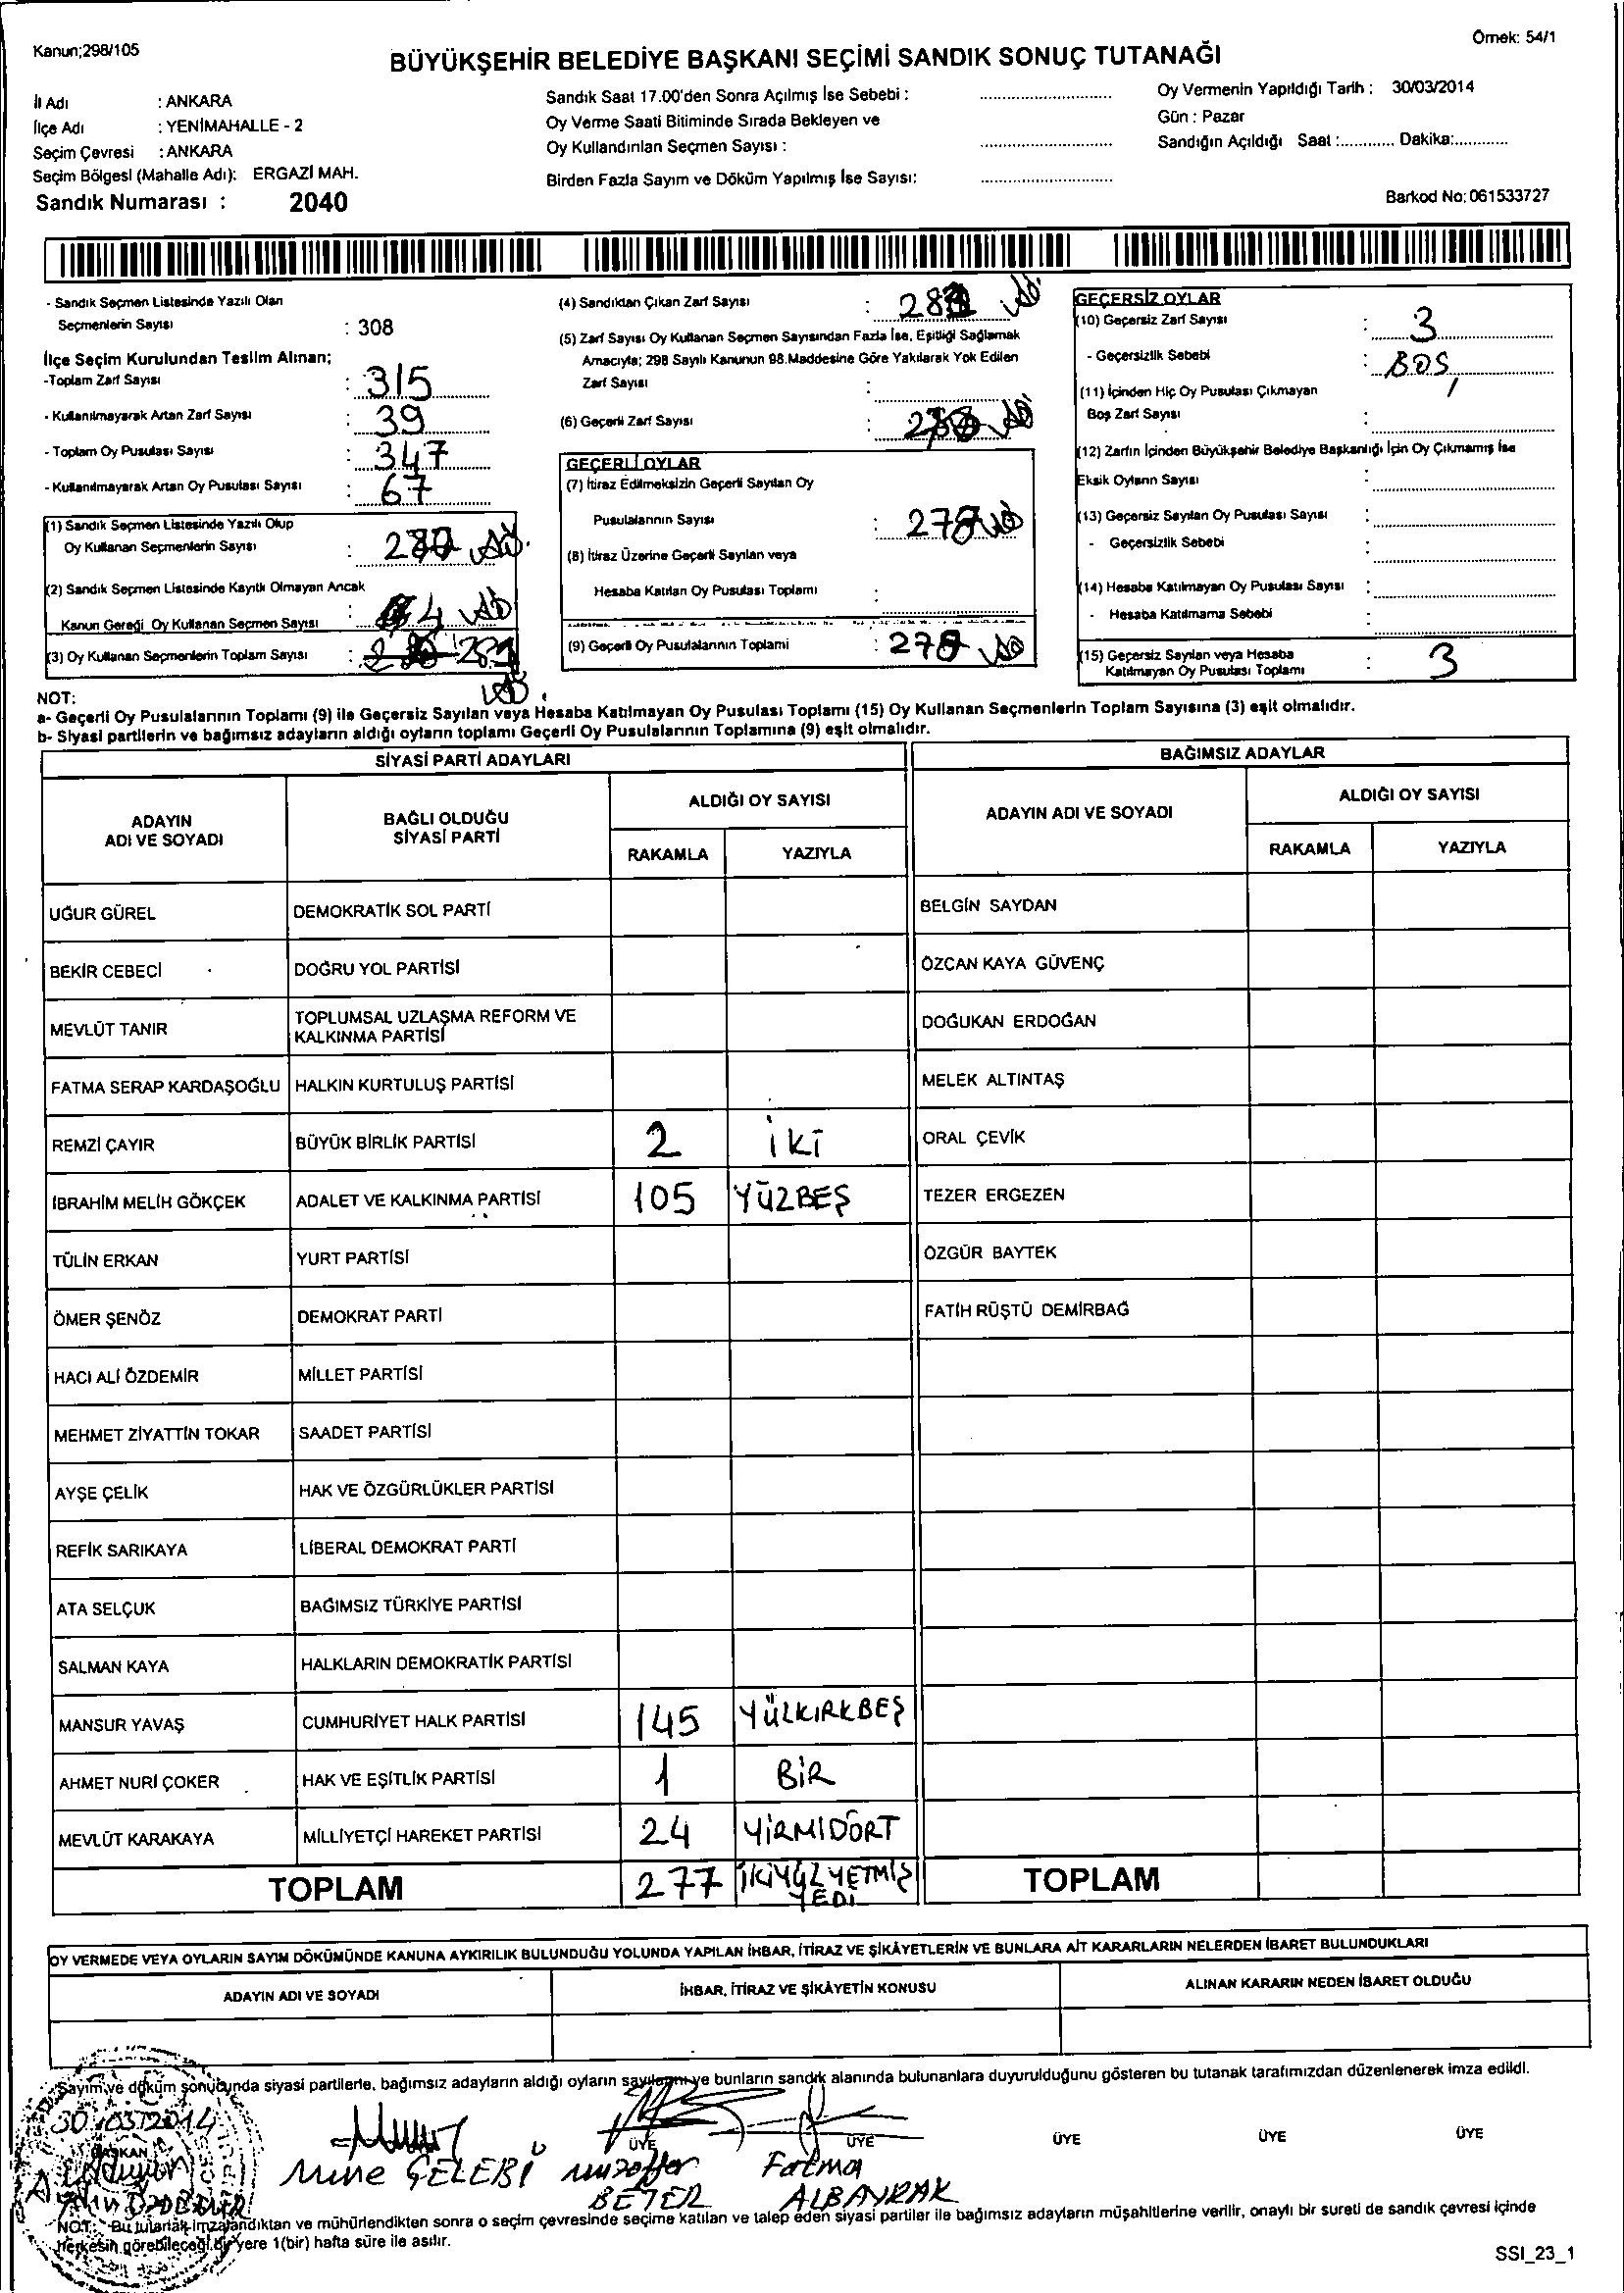 Kanun;298/105
Örnek: 54/1
BÜYÜKŞEHİR BELEDİYE BAŞKANI SEÇİMİ SANDIK SONUÇ TUTANAĞI
İl Adı : ANKARA
İlçe Adı : YENİMAHALLE - 2
Seçim Çevresi : ANKARA
Seçim Bölgesi (Mahalle Adı): ERGAZİ MAH.
Sandık Numarası : 2040
Sandık Saat 17.00'den Sonra Açılmış İse Sebebi :
Oy Verme Saati Bitiminde Sırada Bekleyen ve
Oy Kullandırılan Seçmen Sayısı :
Birden Fazla Sayım ve Döküm Yapılmış İse Sayısı:
Oy Vermenin Yapıldığı Tarih : 30/03/2014
Gün : Pazar
Sandığın Açıldığı Saat :............ Dakika:............
Barkod No: 061533727
- Sandık Seçmen Listesinde Yazılı Olan
Seçmenlerin Sayısı : 308
İlçe Seçim Kurulundan Teslim Alınan;
-Toplam Zarf Sayısı : 315
- Kullanılmayarak Artan Zarf Sayısı : 39
- Toplam Oy Pusulası Sayısı : 347
- Kullanılmayarak Artan Oy Pusulası Sayısı : 67
(1) Sandık Seçmen Listesinde Yazılı Olup
Oy Kullanan Seçmenlerin Sayısı :
(2) Sandık Seçmen Listesinde Kayıtlı Olmayan Ancak
Kanun Gereği Oy Kullanan Seçmen Sayısı : 4
(3) Oy Kullanan Seçmenlerin Toplam Sayısı :
(4) Sandıktan Çıkan Zarf Sayısı :
(5) Zarf Sayısı Oy Kullanan Seçmen Sayısından Fazla İse, Eşitliği Sağlamak
Amacıyla; 298 Sayılı Kanunun 98.Maddesine Göre Yakılarak Yok Edilen
Zarf Sayısı :
(6) Geçerli Zarf Sayısı :
GEÇERLİ OYLAR
(7) İtiraz Edilmeksizin Geçerli Sayılan Oy
Pusulalarının Sayısı : 278
(8) İtiraz Üzerine Geçerli Sayılan veya
Hesaba Katılan Oy Pusulası Toplamı :
(9) Geçerli Oy Pusulalarının Toplamı : 278
GEÇERSİZ OYLAR
(10) Geçersiz Zarf Sayısı : 3
- Geçersizlik Sebebi : BOŞ
(11) İçinden Hiç Oy Pusulası Çıkmayan
Boş Zarf Sayısı :
(12) Zarfın İçinden Büyükşehir Belediye Başkanlığı İçin Oy Çıkmamış İse
Eksik Oyların Sayısı :
(13) Geçersiz Sayılan Oy Pusulası Sayısı :
- Geçersizlik Sebebi :
(14) Hesaba Katılmayan Oy Pusulası Sayısı :
- Hesaba Katılmama Sebebi :
(15) Geçersiz Sayılan veya Hesaba
Katılmayan Oy Pusulası Toplamı : 3
NOT:
a- Geçerli Oy Pusulalarının Toplamı (9) ile Geçersiz Sayılan veya Hesaba Katılmayan Oy Pusulası Toplamı (15) Oy Kullanan Seçmenlerin Toplam Sayısına (3) eşit olmalıdır.
b- Siyasi partilerin ve bağımsız adayların aldığı oyların toplamı Geçerli Oy Pusulalarının Toplamına (9) eşit olmalıdır.
SİYASİ PARTİ ADAYLARI
BAĞIMSIZ ADAYLAR
ADAYIN
ADI VE SOYADI
BAĞLI OLDUĞU
SİYASİ PARTİ
ALDIĞI OY SAYISI
RAKAMLA YAZIYLA
ADAYIN ADI VE SOYADI
ALDIĞI OY SAYISI
RAKAMLA YAZIYLA
UĞUR GÜREL DEMOKRATİK SOL PARTİ BELGİN SAYDAN
BEKİR CEBECİ DOĞRU YOL PARTİSİ ÖZCAN KAYA GÜVENÇ
MEVLÜT TANIR TOPLUMSAL UZLAŞMA REFORM VE
KALKINMA PARTİSİ DOĞUKAN ERDOĞAN
FATMA SERAP KARDAŞOĞLU HALKIN KURTULUŞ PARTİSİ MELEK ALTINTAŞ
REMZİ ÇAYIR BÜYÜK BİRLİK PARTİSİ 2 İKİ ORAL ÇEVİK
İBRAHİM MELİH GÖKÇEK ADALET VE KALKINMA PARTİSİ 105 YÜZBEŞ TEZER ERGEZEN
TÜLİN ERKAN YURT PARTİSİ ÖZGÜR BAYTEK
ÖMER ŞENÖZ DEMOKRAT PARTİ FATİH RÜŞTÜ DEMİRBAĞ
HACI ALİ ÖZDEMİR MİLLET PARTİSİ
MEHMET ZİYATTİN TOKAR SAADET PARTİSİ
AYŞE ÇELİK HAK VE ÖZGÜRLÜKLER PARTİSİ
REFİK SARIKAYA LİBERAL DEMOKRAT PARTİ
ATA SELÇUK BAĞIMSIZ TÜRKİYE PARTİSİ
SALMAN KAYA HALKLARIN DEMOKRATİK PARTİSİ
MANSUR YAVAŞ CUMHURİYET HALK PARTİSİ 145 YÜZKIRKBEŞ
AHMET NURİ ÇOKER HAK VE EŞİTLİK PARTİSİ 1 BİR
MEVLÜT KARAKAYA MİLLİYETÇİ HAREKET PARTİSİ 24 YİRMİDÖRT
TOPLAM 277 İKİYÜZYETMİŞ
YEDİ TOPLAM
OY VERMEDE VEYA OYLARIN SAYIM DÖKÜMÜNDE KANUNA AYKIRILIK BULUNDUĞU YOLUNDA YAPILAN İHBAR, İTİRAZ VE ŞİKÂYETLERİN VE BUNLARA AİT KARARLARIN NELERDEN İBARET BULUNDUKLARI
ADAYIN ADI VE SOYADI İHBAR, İTİRAZ VE ŞİKÂYETİN KONUSU ALINAN KARARIN NEDEN İBARET OLDUĞU
Sayım ve döküm sonucunda siyasi partilerle, bağımsız adayların aldığı oyların sayılarını ve bunların sandık alanında bulunanlara duyurulduğunu gösteren bu tutanak tarafımızdan düzenlenerek imza edildi.
30/03/2014
BAŞKAN ÜYE ÜYE ÜYE ÜYE ÜYE
Mine ÇELEBİ Muzaffer Fatma
BETER ALBAYRAK
NOT: Bu tutanak imzalandıktan ve mühürlendikten sonra o seçim çevresinde seçime katılan ve talep eden siyasi partiler ile bağımsız adayların müşahitlerine verilir, onaylı bir sureti de sandık çevresi içinde
herkesin görebileceği bir yere 1(bir) hafta süre ile asılır.
SSI_23_1